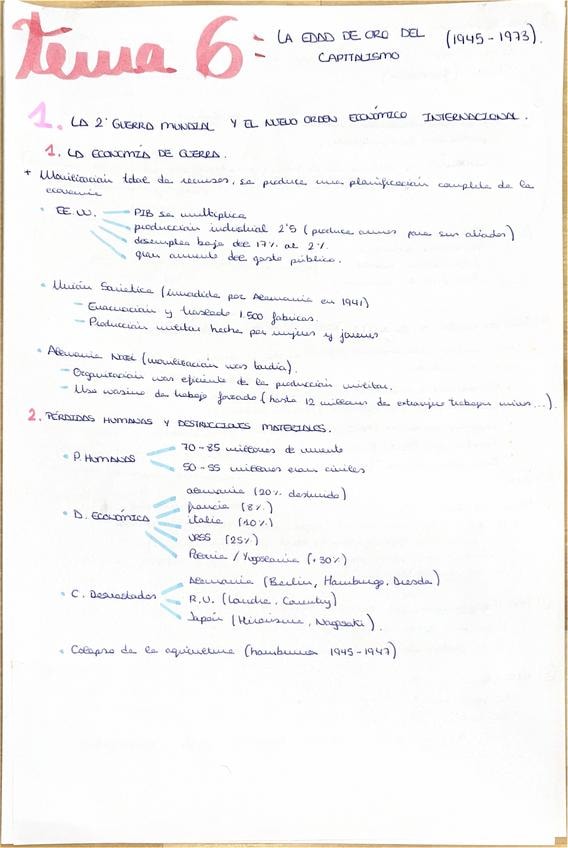 tema 6: LA EDAD DE ORO DEL CAPITALISMO (1945-1973).
1. LA 2ª GUERRA MUNDIAL Y EL NUEVO ORDEN ECONÓMICO INTERNACIONAL.
1. LA ECONOMÍA DE GUERRA.
+ Movilización total de recursos, se produce una planificación completa de la
economía
• EE.UU. — PIB se multiplica
producción industrial 2'5 (produce armas para sus aliados)
desempleo baja del 17% al 2%.
gran aumento del gasto público.
• Unión Soviética (invadida por Alemania en 1941)
– Evacuación y traslado 1.500 fábricas.
– Producción militar hecha por mujeres y jóvenes
• Alemania Nazi (movilización mas tardía).
– Organización mas eficiente de la producción militar.
– Uso masivo de trabajo forzado (hasta 12 millones de extranjeros trabajos minas...).
2. PÉRDIDAS HUMANAS Y DESTRUCCIONES MATERIALES.
• P. HUMANAS
70-85 millones de muertos
50-55 millones eran civiles
• D. ECONÓMICA
alemania (20% destruido)
francia (8%)
italia (10%)
URSS (25%)
Polonia / Yugoslavia (+30%)
• C. Devastadas
Alemania (Berlin, Hamburgo, Dresda)
R.U. (Londres, Coventry)
Japón (Hiroshima, Nagasaki).
• Colapso de la agricultura (hambrunas 1945-1947)